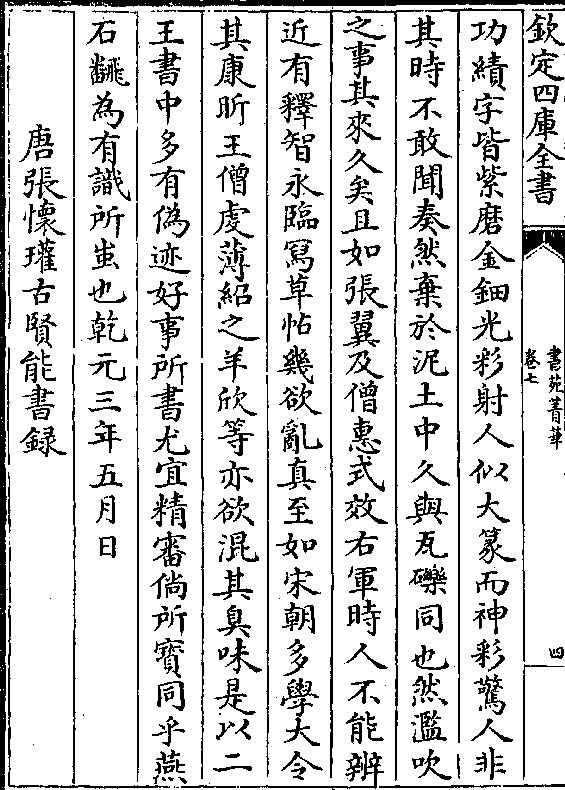 欽定四庫全書
書苑菁華
卷七
四
功績字皆紫磨金鈿光彩射人似大篆而神彩驚人非
其時不敢聞奏然棄於泥土中久與瓦礫同也然濫吹
之事其來久矣且如張翼及僧惠式效右軍時人不能辨
近有釋智永臨寫草帖幾欲亂真至如宋朝多學大令
其康昕王僧虔薄紹之羊欣等亦欲混其臭味是以二
王書中多有偽迹好事所書尤宜精審倘所寳同乎燕
石飜為有識所蚩也乾元三年五月日
唐張懷瓘古賢能書録